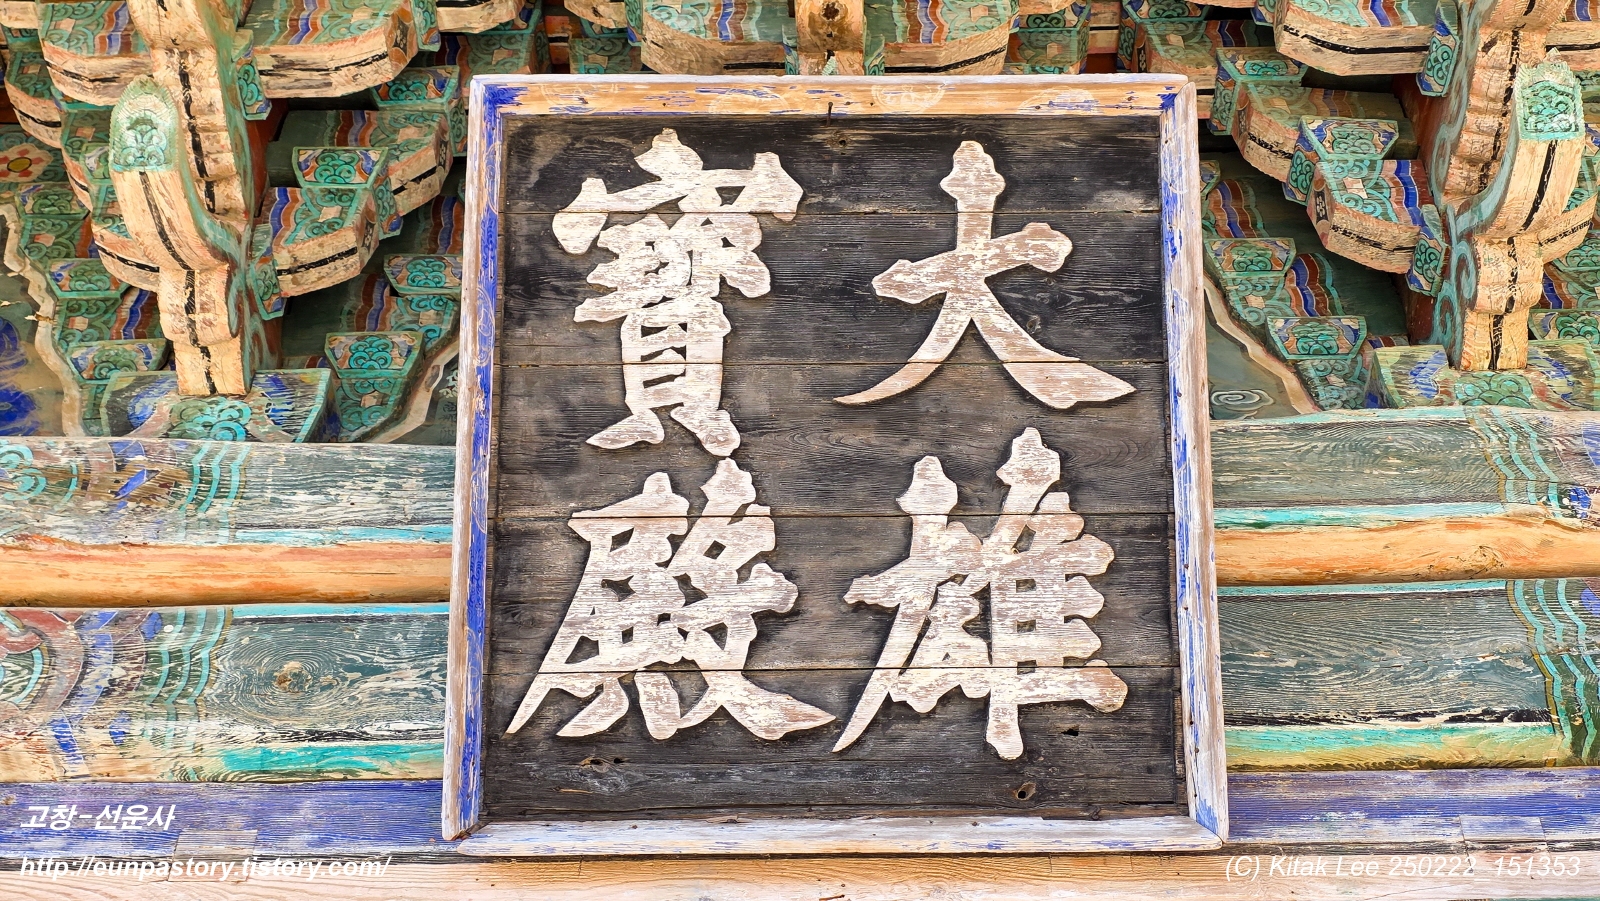 大雄
寶殿
고창-선운사
http://eunpastory.tistory.com/
(C) Kitak Lee 250222_151353